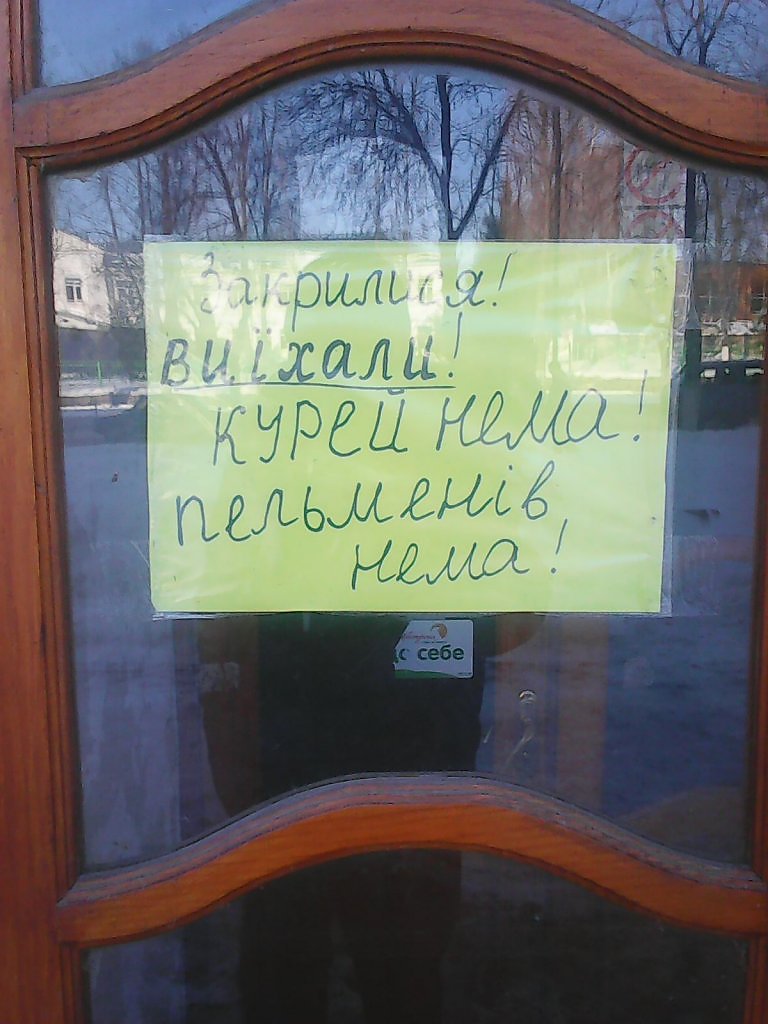 Закрилися!
виїхали!
курей нема!
пельменів
нема!
себе